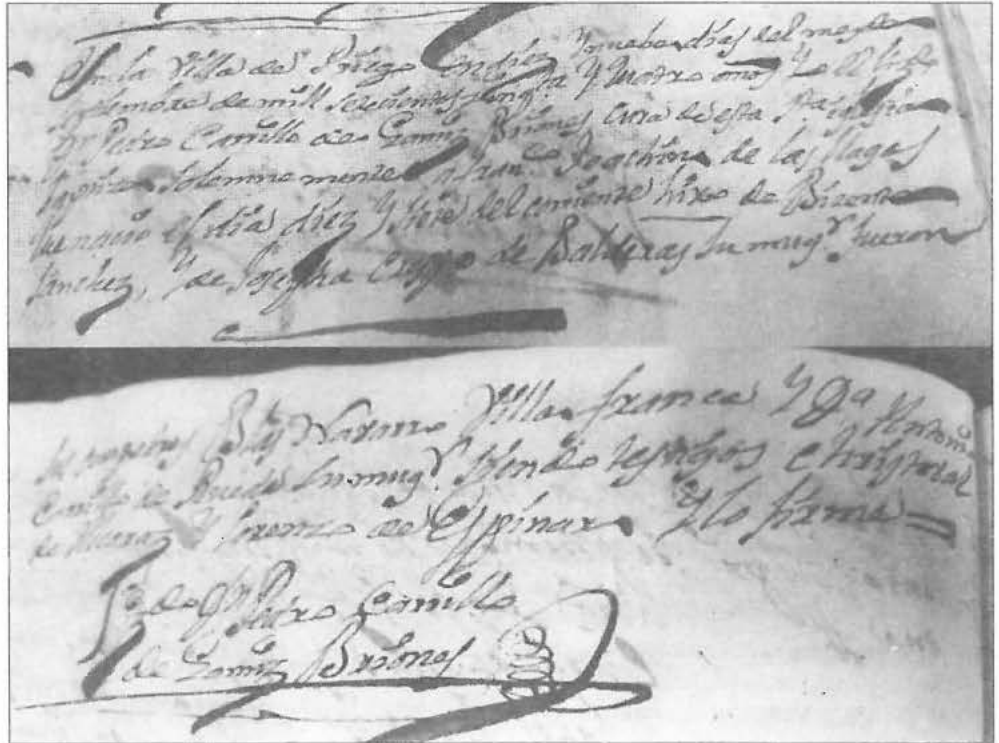 En la Villa de Priego en diez y nuebe dias del mes de
septiembre de mill setecientos sinqta y quatro años Yo el Lizdo
Dn Pedro Camillo de Gamiz Briones Cura de esta Sta Yglesia
baptize solemnemente a Franco Joachin de las llagas
que nacio el dia diez y siete del corriente hixo de Bizente
Sanchez, y de Josepha Crespo de Balderas su mugr fueron
sus padrinos Blas Villafranca y Da Antonia
Camillo de Rueda su mugr siendo testigos Christobal
de y Lorenzo de Espinar y lo firme
Lizdo Dn Pedro Camillo
de Gamiz Briones